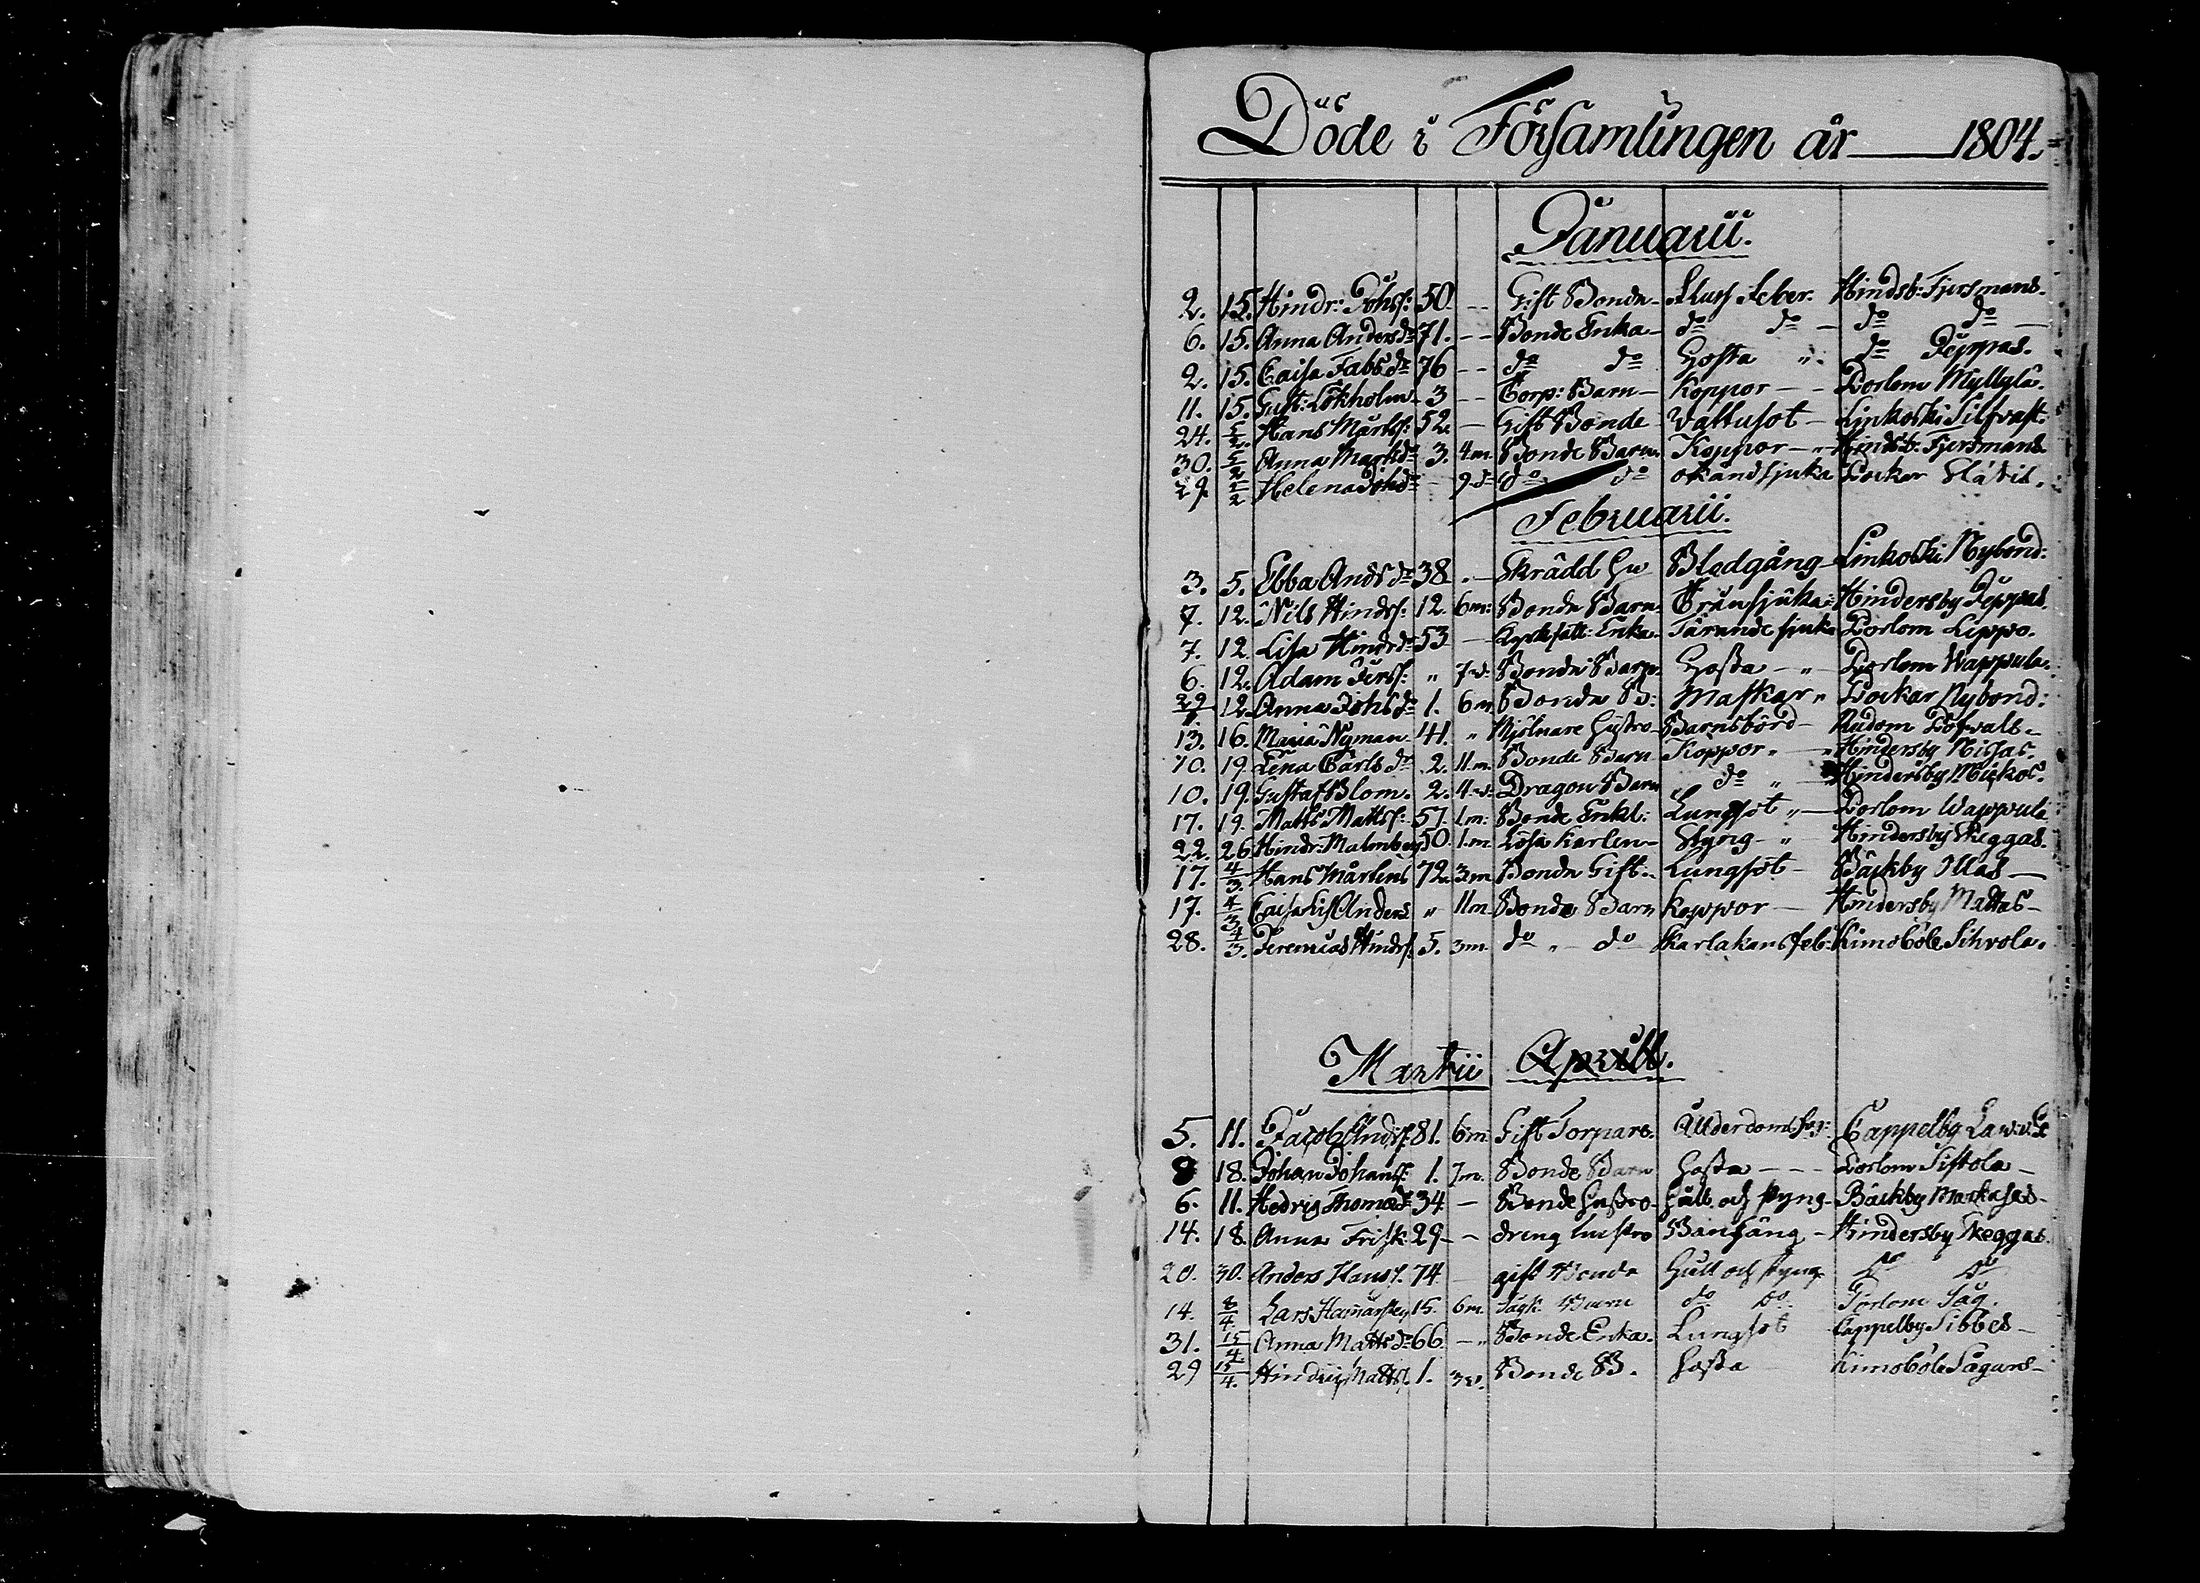 Döde i Församlingen år 1804.
Januarii.
2. 15. Hindr: Johss: 50. -- Gift Bonde Fluss Feber. Hindsb: Tjersmans.
6. 15. Anna Andersdr 71. -- Bonde Enka do do do do
2. 15. Caisa Jabsdr 76 -- do do Hosta " do Jeppas.
11. 15. Gust: Lökholm 3 -- Torp: Barn Koppor -- Porlom Myllylä.
24. 5/2. Hans Mårtss: 52. - Gift Bonde Vattusot Linkoski Silfvast:
30. 5/2 Anna Mattsdr 3. 4m. Bonde Barn Koppor " Hindsb: Tjersmans
29. 5/2 Helena Johsdr - 9d do do okändsjuka Lockar
Februarii.
3. 5. Ebba Andsdr 38. - Skrädd Hu Blodgång Linkoski Nybond:
7. 12. Nils Hindss: 12. 6m: Bonde Barn Hindersby Jeppas.
7. 12. Lisa Hindrdr 53 - Enka Tärande sjuka Porlom Lippo.
6. 12. Adam Jerss: " 7d: Bonde Barn Hosta - " Porlom Wappula.
29/1 12. Anna Johsdr 1. 6m. Bonde B: Maskar " Lockar Nybond:
13. 16. Maria Nyman 41. " Mjölnare Hustro Barnsbörd Rudom Löfvals
10. 19. Lena Carlsdr 2. 11m. Bonde Barn Koppor. Hindersby Nissas.
10. 19. Gustaf Blom. 2. 4d: Dragon Barn " do " Hindersby Mickos.
17. 19. Matts Mattss: 51. 1m: Bonde Enkl: Lungsot " Porlom Wappula
22. 26 Hindr: Malmberg 50. 1m. Lösa Karlen Styng " Hindersby Skeggas.
17. 4/3. Hans Mårtens 72. 3m Bonde Gift. Lungsot Bäckby Ollas
17. 4/3 Caisa Lis Anders " 11m. Bonde Barn Koppor Hindersby Mattas
28. 4/3. Jeremias Hindrs: 5. 3m. do " do Skarlakansfeb: Kimoböle Sihvola.
Martii Aprill.
5. 11. Jacob Andss 81. 6m. Gift Torpare. Ålderdoms Cappelby
8 18. Johan Johanss: 1. 7m. Bonde Barn Hosta --- Porlom Siftola
6. 11. Hedvig Thomædr 34 - Bonde Hustro Håll och styng Bäckby Markusas
14. 18. Anna Frisk 29 - dreng hustro Barnsäng Hindersby Skeggas.
20. 30. Anders Hanss. 74 - gift Bonde Håll och styng do do
14. 8/4. Lars 15. 6m. Barn do do. Porlom Såg.
31. 15/4 Anna Mattsdr 66 - " Bonde Enka. Lungsot Cappelby Sibbes
29 15/4. Hindric Mattss. 1. 3v. Bonde B. Hosta Kimoböle Sägars